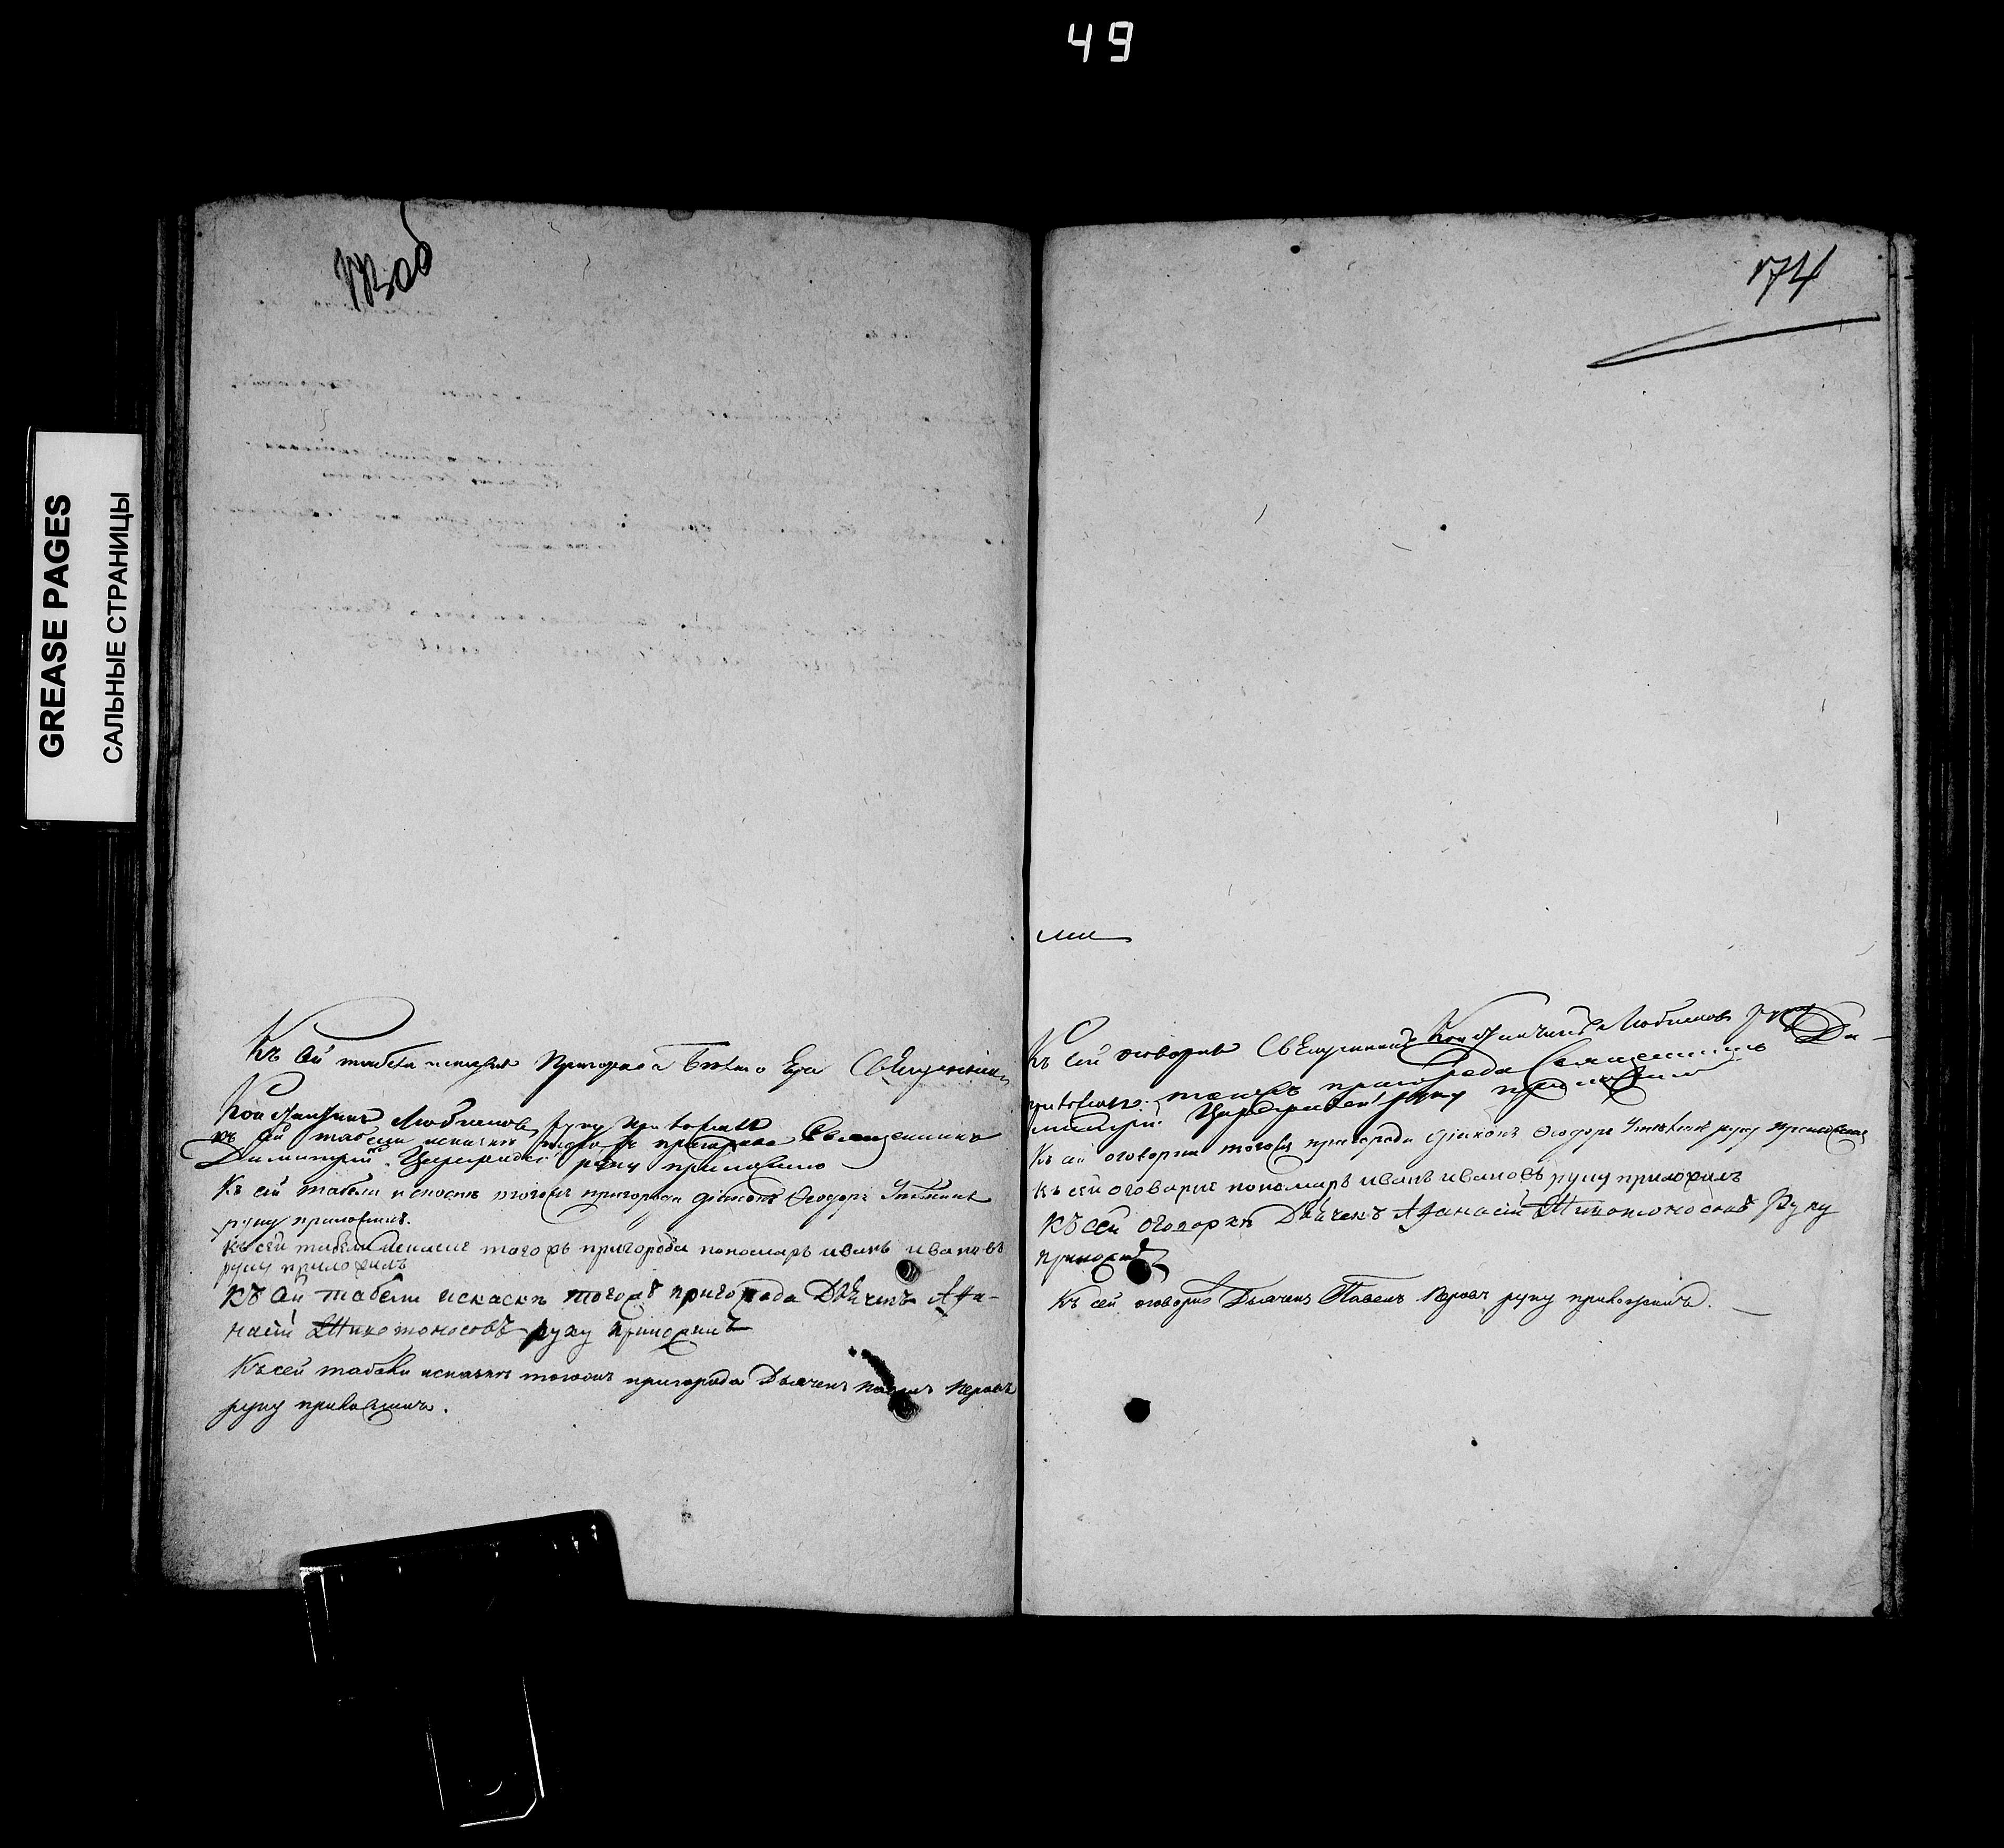 49
GREASE PAGES
САЛЬНЫЕ СТРАНИЦЫ
173 об
Къ сей табели искаске Пригорода Священникъ
Констянтинъ Любимовъ руку приложилъ
къ сей табели искаске тогожъ пригорода Священникъ
Димитрий руку приложилъ
Къ сей табели искаске тогожъ пригорода діаконъ Ѳеодоръ
руку приложилъ.
Къ сей табели искаске тогожъ пригорода пономарь иванъ ивановъ
руку приложилъ
Къ сей табели искаскѣ тогожъ пригорода Дьячекъ Афа-
насій руку приложилъ
Къ сей табели искаскѣ тогожъ пригорода Дьячекъ павелъ
руку приложилъ.
174
ми
Къ сей оговорке Священникъ Констянтинъ Любимовъ руку
приложилъ. тогожъ пригорода Священникъ Ди-
митрий руку приложилъ
Къ сей оговорки тогожъ пригорода діаконъ Ѳеодоръ руку приложилъ
Къ сей оговорке пономарь иванъ ивановъ руку приложилъ
Къ сей оговоркѣ Дьячекъ Афанасій Руку
приложилъ
Къ сей оговорке Дьячекъ Павелъ руку приложилъ.